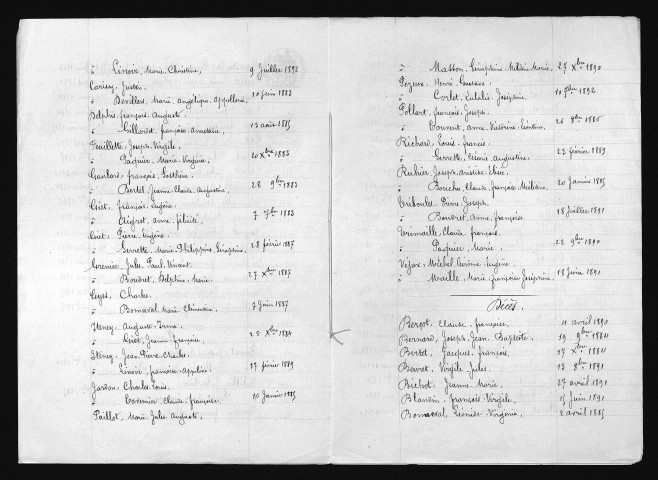 à Linoir, Marie Christine, 9 Juillet 1892
Carisey, Justin.
à Devillers, Marie, angélique, appolline, 10 juin 1883
Delphis, françois, Auguste.
à Gillardet, françoise, annette, 13 août 1885
feuillette, Joseph, Virgile,
à Paquier, Marie, Virginie, 20 Xbre 1883
françois,
à Bertet, Jeanne, Claude, augustine, 28 9bre 1883
françois, Eugène,
à anne, félicité, 7 1883
Pierre, Eugène,
à Gerrette, Marie, Philippine, Séraphine, 28 février 1887
Grenier, Jules, Paul, Vincent.
à Boudret, Delphine, Marie. 27 Xbre 1887
Charles.
à Bonnaval, Marie, Clémentine. 7 Juin 1887
Henry, Auguste,
à Jeanne, françoise, 25 Xbre 1884
Henry, Jean, Pierre, Charles.
à Linoir, françoise, appoline, 17 février 1889
Jardon, Charles, Louis,
à Tavernier, Claude, françoise, 10 Janvier 1885
Paillot, Marie, Jules, Auguste,
à Masson, Séraphine, Mélanie, Marie, 27 Xbre 1890
Pezeux, Henri, Gustave.
à Corlet, Eulalie, Joséphine, 10 1892
Pollart, françois, Joseph.
à Touvent, anne, Victorine, Léontine, 26 8bre 1886
Richard, Louis, francis.
à Gerrette, augustine, 23 février 1889
Ruhier, Joseph, aristide,
à Bouchu, Claude, françoise, Mélanie, 20 Janvier 1885
Triboulet, Pierre, Joseph.
à Boudret, Anne, françoise, 18 Juillet 1891
Vermaille, Claude, françois,
à Paquier, Marie, 28 9bre 1890
Michel, Jérôme, Eugène,
à Maille, Marie, françoise, Joséphine, 18 Juin 1891
Décès.
Bergot, Claude, françoise, 11 avril 1890
Bernard, Joseph, Jean, Baptiste, 19 9bre 1884
Bertet, Jacques, françois, 17 Xbre 1884
Beuret, Virgile, Jules. 13 8bre 1891
Bichet, Jeanne, Marie. 27 avril 1891
Blandin, françois, Virgile, 15 Juin 1891
Bonnaval, Léonide, Virginie, 2 avril 1885